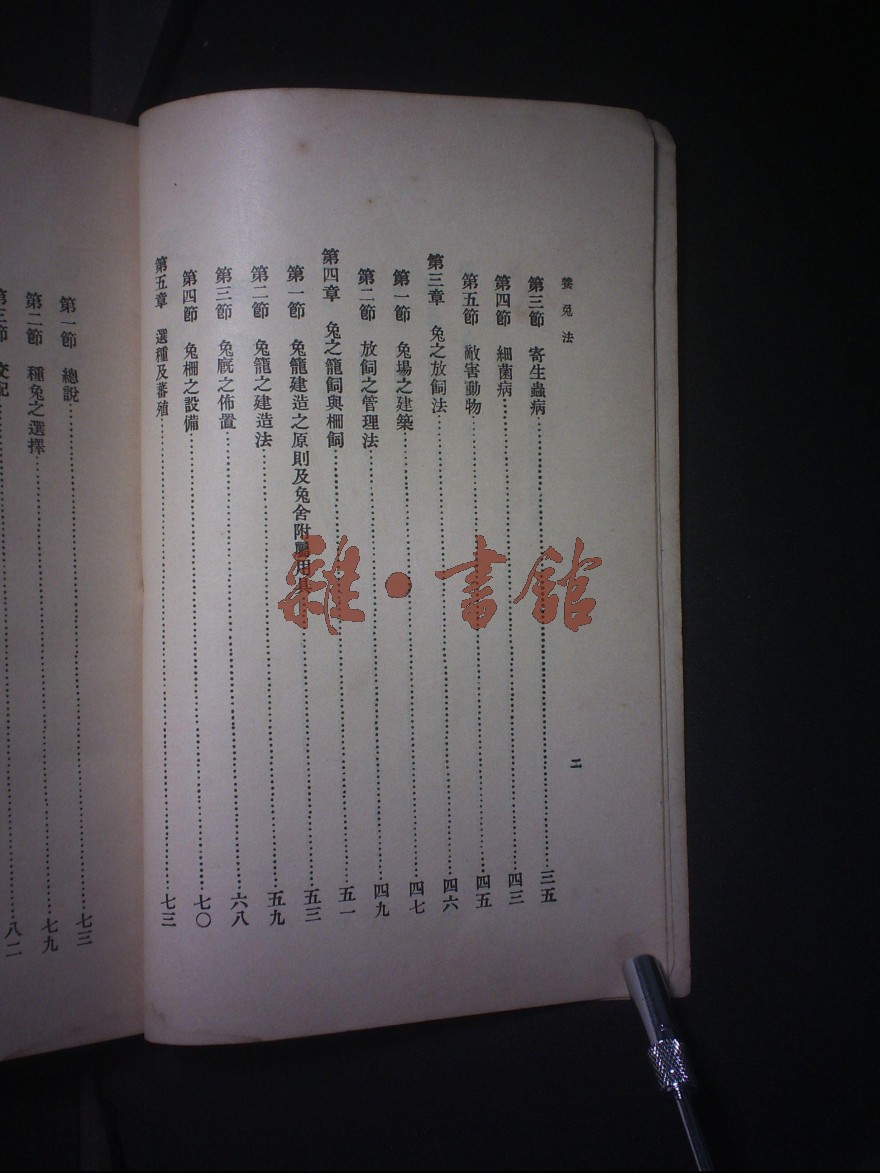 養兔法
二
第三節 寄生蟲病 三五
第四節 細菌病 四三
第五節 敵害動物 四五
第三章 兔之放飼法 四六
第一節 兔場之建築 四七
第二節 放飼之管理法 四九
第四章 兔之籠飼與柵飼 五一
第一節 兔籠建造之原則及兔舍附屬用具 五三
第二節 兔籠之建造法 五九
第三節 兔廐之佈置 六八
第四節 兔柵之設備 七〇
第五章 選種及蕃殖 七三
第一節 總說 七三
第二節 種兔之選擇 七九
第三節 交配 八二
雜·書館